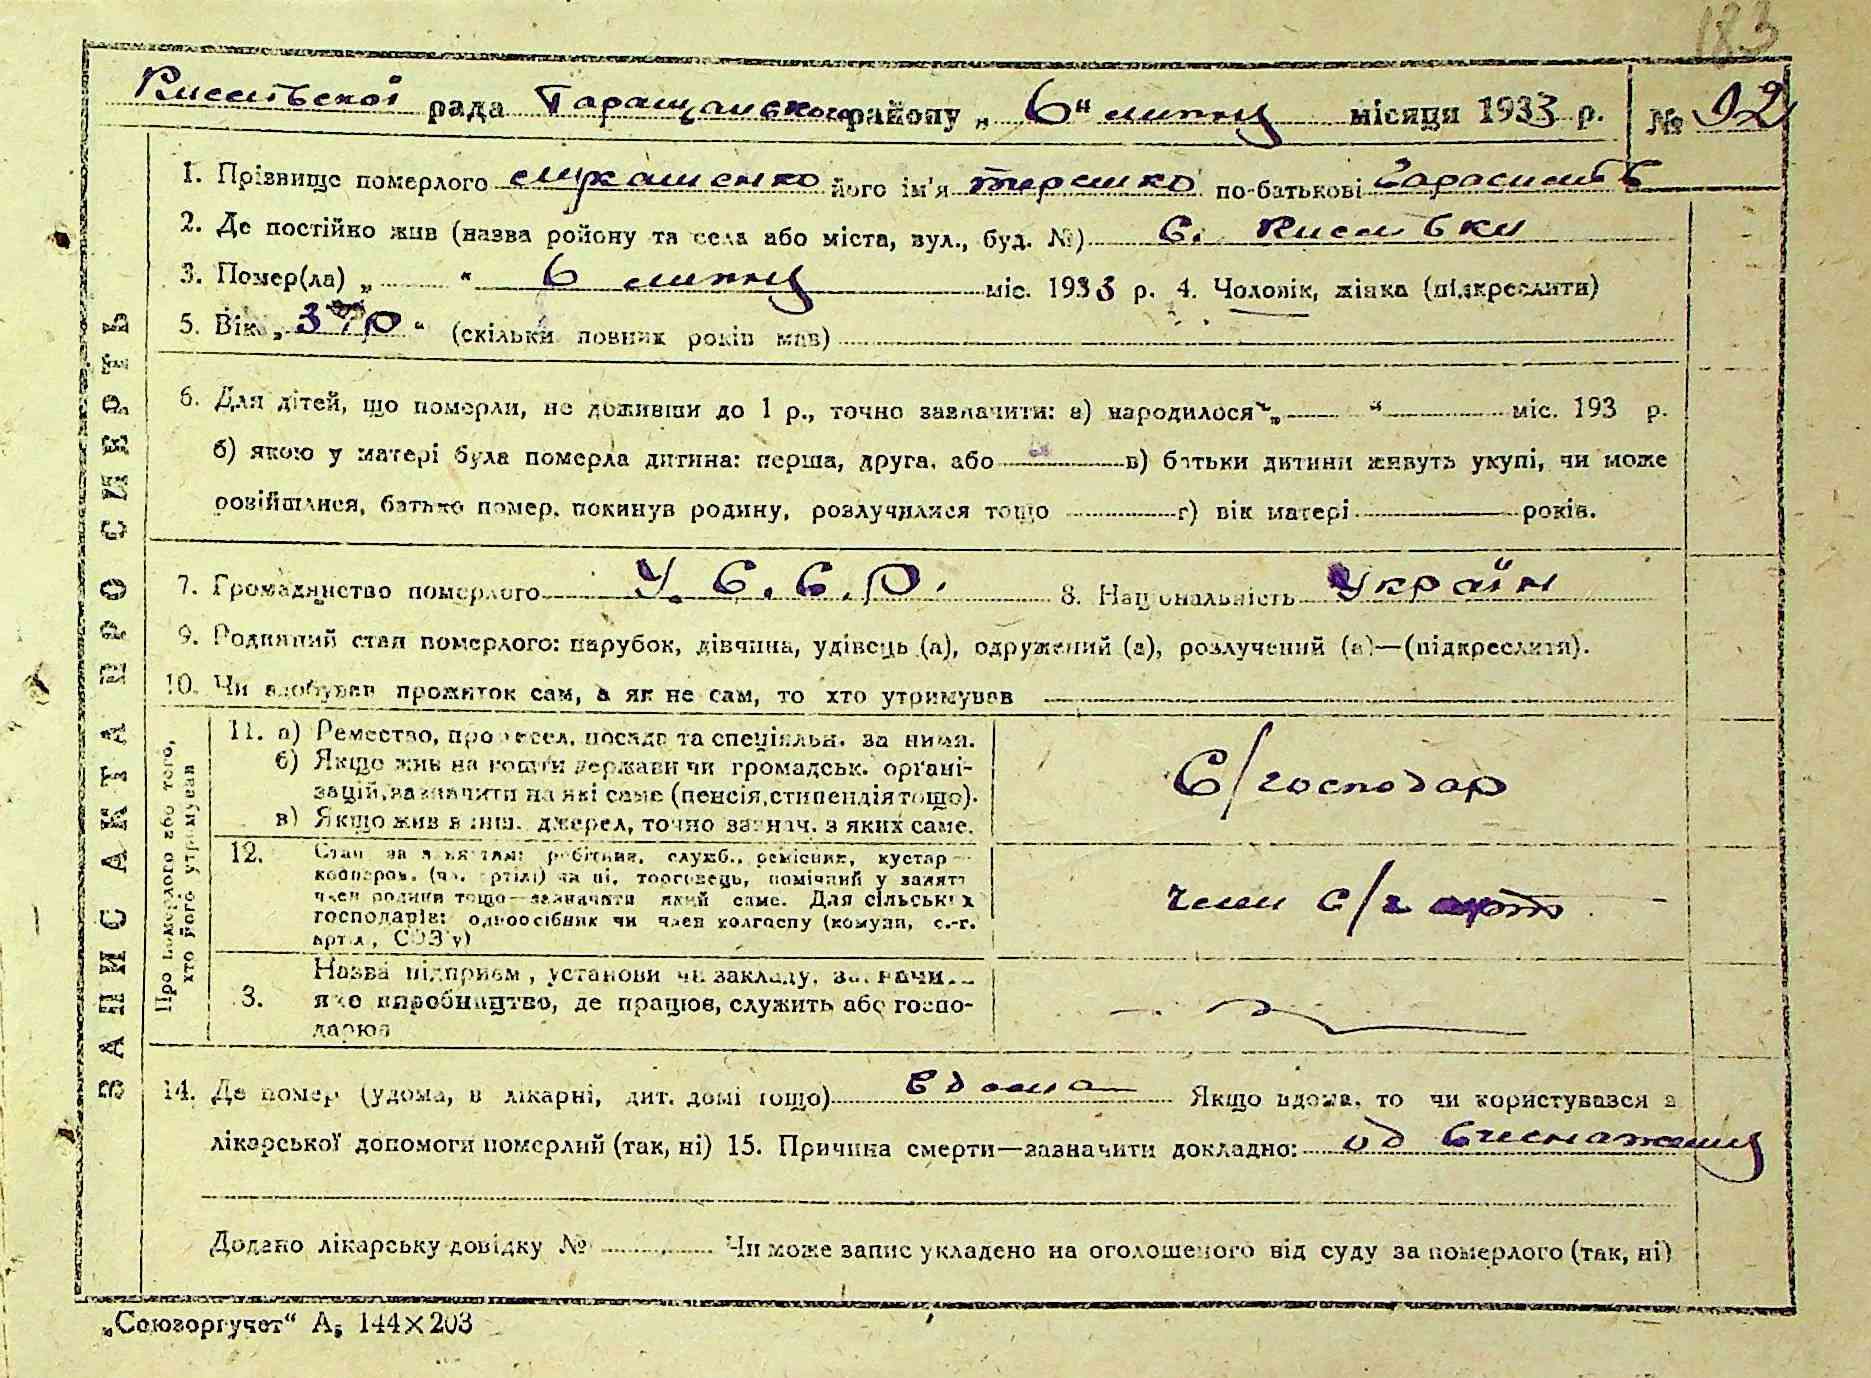 183
Кислівської рада Таращанської району „6“ липня місяця 1933 р. № 92
1. Прізвище померлого Лукашенко його ім'я Терешко по-батькові Гарасимов
2. Де постійно жив (назва ройону та села або міста, вул., буд. №) с. Кислівки
3. Помер(ла) „ “ 6 липня міс. 1933 р. 4. Чоловік, жінка (підкреслити)
5. Вік „ р “ (скільки повних років мав)
6. Для дітей, що померли, не доживши до 1 р., точно зазначити: а) народилося „ “ міс. 193 р.
б) якою у матері була померла дитина: перша, друга, або в) батьки дитини живуть укупі, чи може
розійшлися, батько помер, покинув родину, розлучилися тощо г) вік матері років.
7. Громадянство померлого У.С.С.Р. 8. Національність Україн
9. Родинний стан померлого: парубок, дівчина, удівець (а), одружений (а), розлучений (а)—(підкреслити).
10. Чи здобував прожиток сам, а як не сам, то хто утримував
ЗАПИС АКТА ПРО СМЕРТЬ
Про померлого або того,
хто його утримував
11. а) Ремество, професія, посада та спеціяльн. за ними.
б) Якщо жив на кошти держави чи громадськ. органі-
зацій, зазначити на які саме (пенсія, стипендія тощо).
в) Якщо жив з інш. джерел, точно зазнач. з яких саме.
С/господар
12. Стан за заняттям: робітник, служб., ремісник, кустар—
кооперов. (чл. артілі) чи ні, торговець, помічний у занятті
член родини тощо—зазначити який саме. Для сільських
господарів: одноосібник чи член колгоспу (комуни, с.-г.
артілі, СОЗ'у)
член с/г арт
3. Назва підприєм., установи чи закладу, зазначи
яке виробництво, де працює, служить або госпо-
дарює
14. Де помер (удома, в лікарні, дит. домі тощо) вдома Якщо вдома, то чи користувався з
лікарської допомоги померлий (так, ні) 15. Причина смерти—зазначити докладно: од виснаження
Додано лікарську довідку № Чи може запис укладено на оголошеного від суду за померлого (так, ні)
„Союзоргучет“ А5 144×203